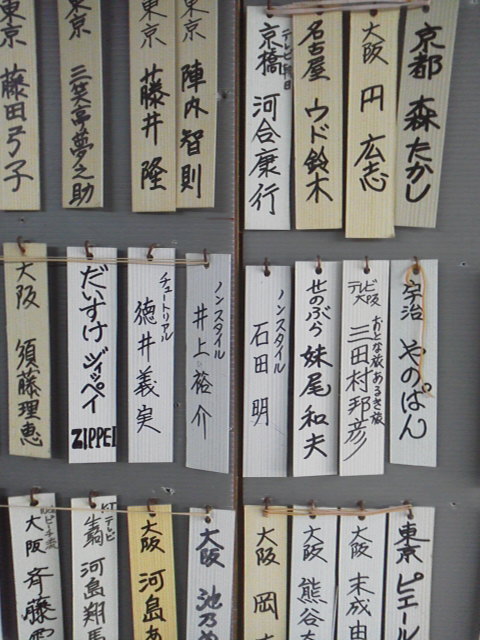 京都 森たかし
大阪 円 広志
名古屋 ウド鈴木
テレビ朝日
京橋 河合康行
東京 陣内智則
東京 藤井 隆
東京 三笑亭夢之助
東京 藤田弓子
宇治 やのぱん
テレビ大阪
おとな旅あるき旅
三田村邦彦
せのぶら 妹尾和夫
ノンスタイル
石田 明
ノンスタイル
井上裕介
チュートリアル
徳井義実
だいすけ ヅィッペイ
ZIPPEI
大阪 須藤理恵
東京 ピエー
大阪 末成由
大阪 熊谷
大阪 岡
大阪 池乃め
大阪 河島あ
KTテレビ
生駒 河島翔馬
大阪 斉藤雪